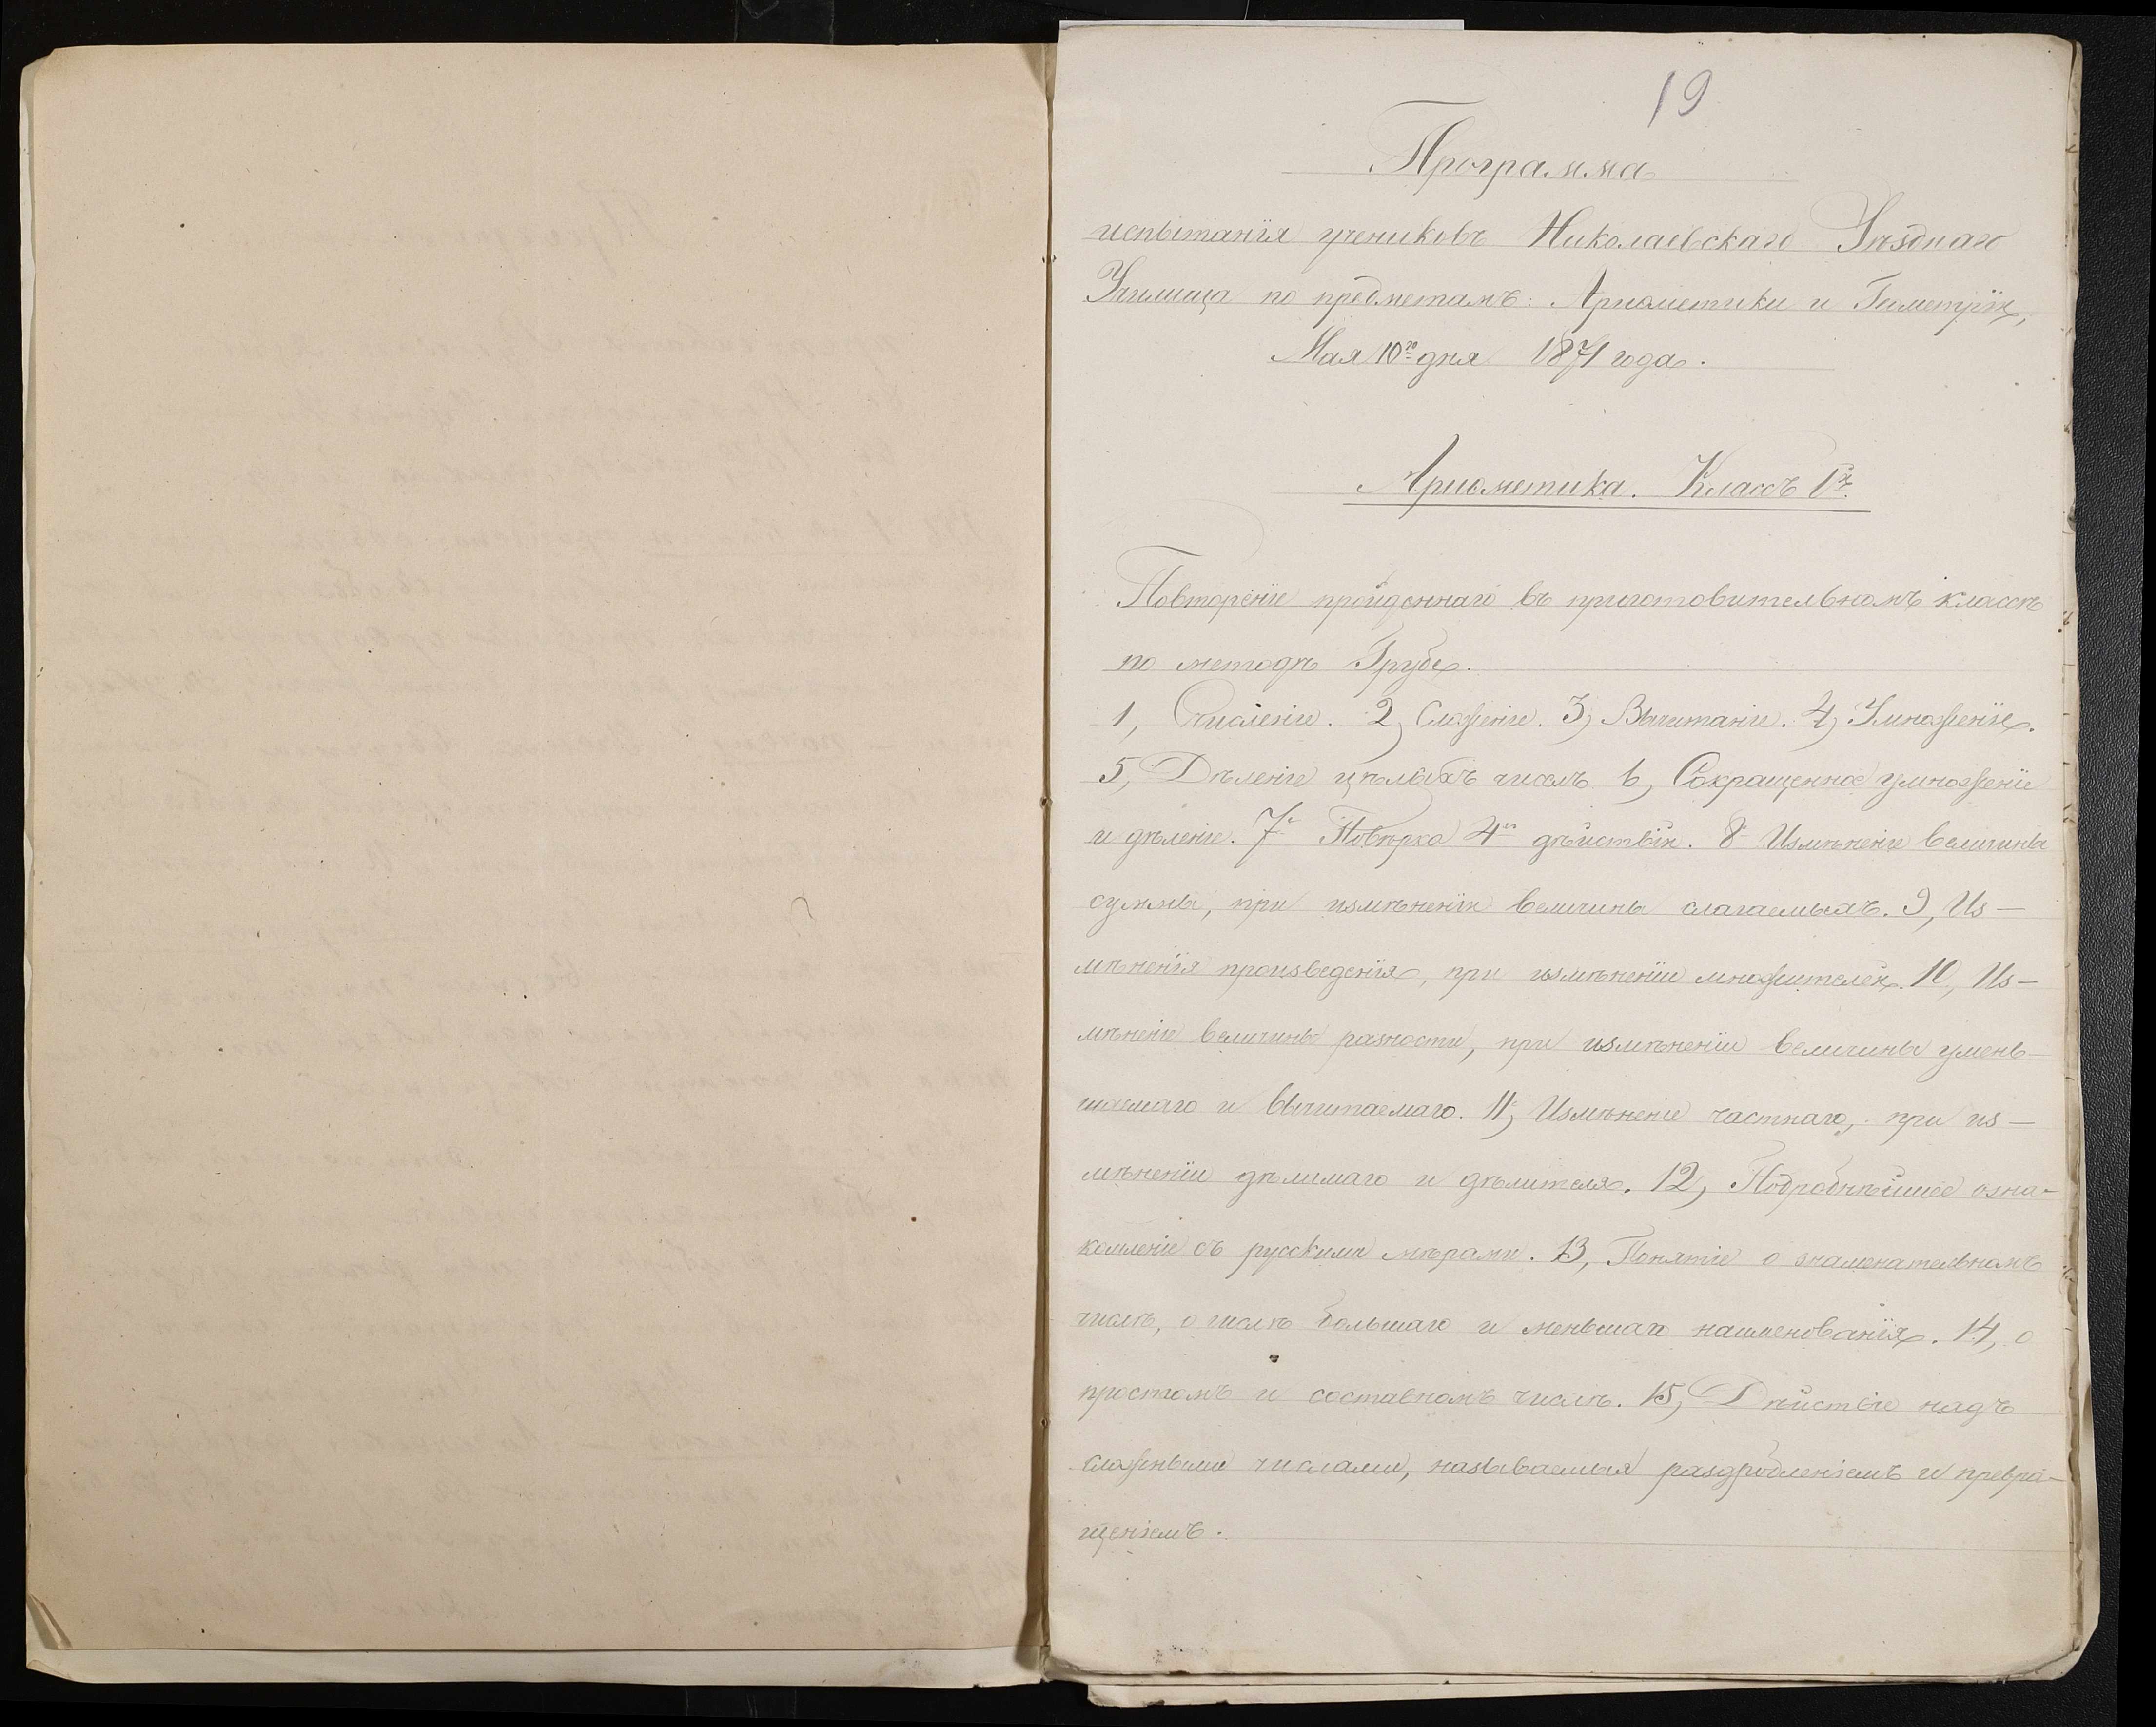 19
Программа
испытанія учениковъ Николаевскаго Уѣзднаго
Училища по предметамъ: Ариѳметики и Геометріи,
Мая 10го дня 1871 года.
Ариѳметика. Классъ 1й.
Повтореніе пройденнаго въ приготовительномъ классѣ
по методѣ Грубе.
1, Счисленіе. 2, Сложеніе. 3, Вычитаніе. 4, Умноженіе.
5, Дѣленіе цѣлыхъ чиселъ 6, Сокращенное умноженіе
и дѣленіе. 7е Повѣрка 4хъ дѣйствій. 8е Измѣненіе величины
суммы, при измѣненіи величины слагаемыхъ. 9, Из-
мѣненія произведенія, при измѣненіи множителей. 10, Из-
мѣненіе величины разности, при измѣненіи величины умень-
шаемаго и вычитаемаго. 11, Измѣненіе частнаго, при из-
мѣненіи дѣлимаго и дѣлителя. 12, Подробнѣйшее озна-
комленіе съ русскими мѣрами. 13, Понятіе о знаменательномъ
числѣ, о числѣ большаго и меньшаго наименованія. 14, о
простомъ и составномъ числѣ. 15, Дѣйствіе надъ
сложными числами, называемыя раздробленіемъ и превра-
щеніемъ.